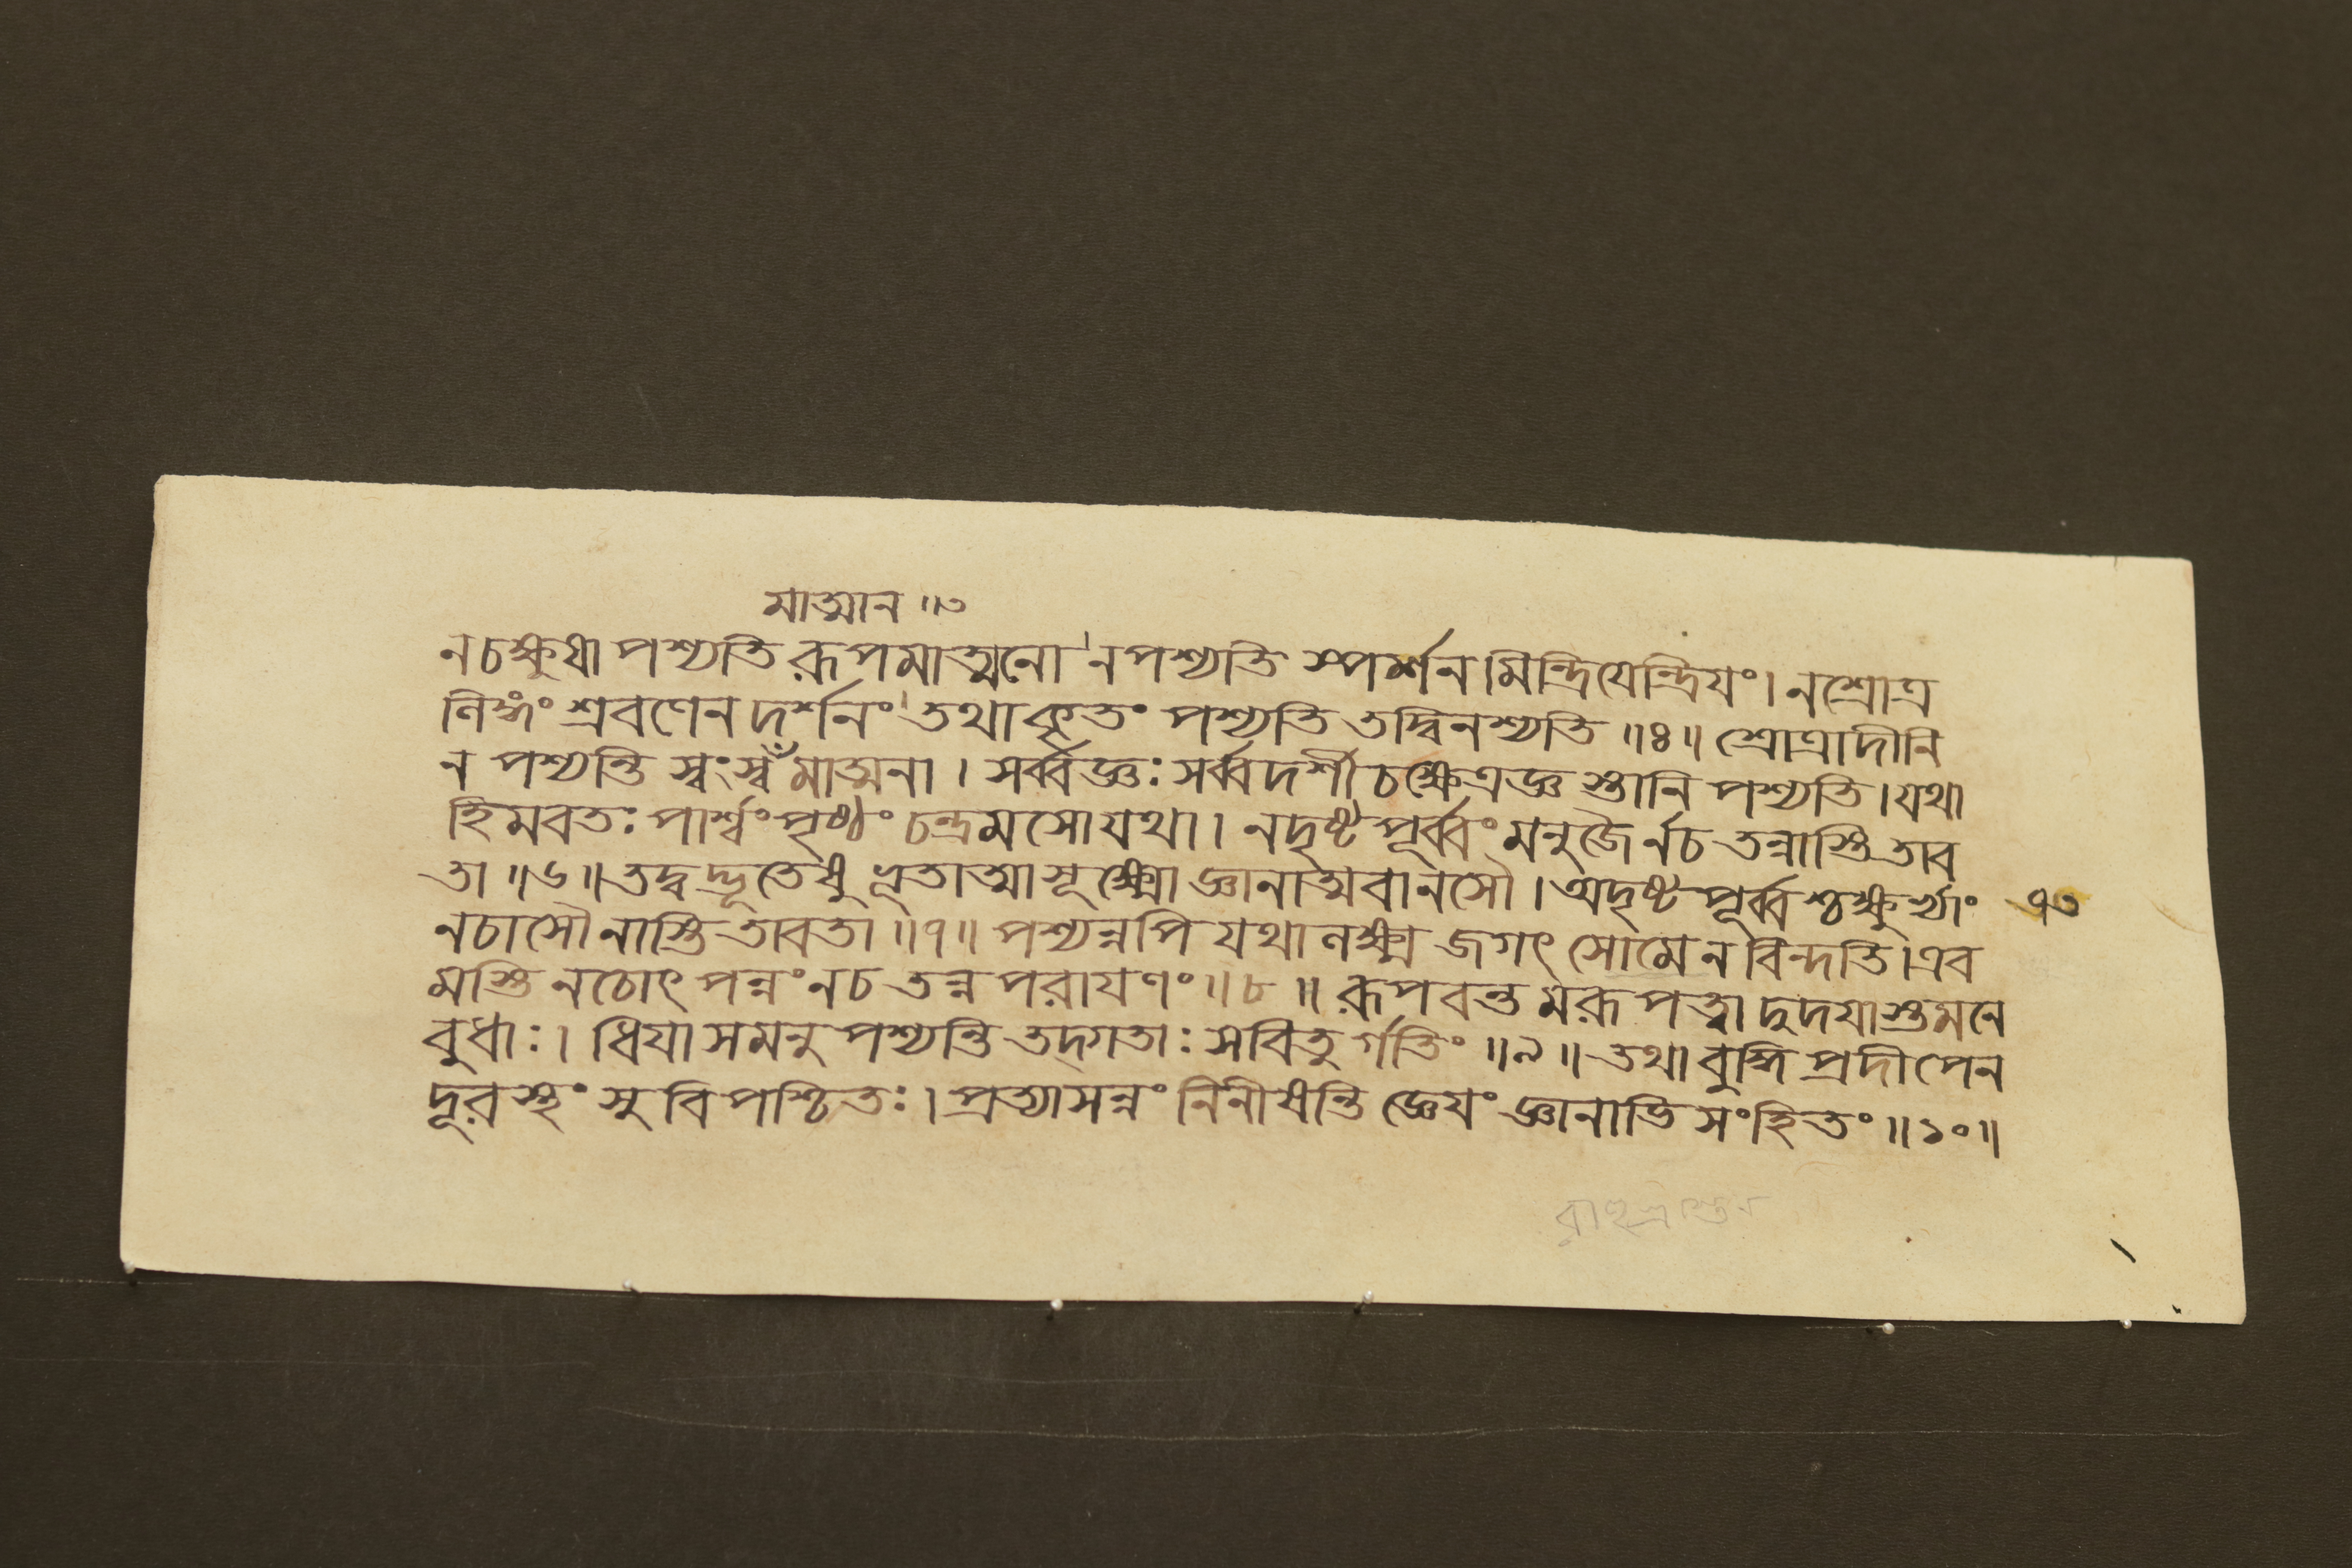 মাত্মান ॥৩
ন চক্ষুষা পশ্যতি রূপমাত্মনো ন পশ্যতি স্পর্শনমিন্দ্রিযেন্দ্রিযং। ন শ্রোত্র
লিঙ্গং শ্রবণেন দর্শনং তথা কৃতং পশ্যতি তদ্বিনশ্যতি ॥৪॥ শ্রোত্রাদীনি
ন পশ্যন্তি স্বং স্বঁমাত্মনা । সর্ব্বজ্ঞঃ সর্ব্বদর্শী চ ক্ষেত্রজ্ঞস্তানি পশ্যতি। যথা
হিমবতঃ পার্শ্বং পৃষ্ঠং চন্দ্রমসো যথা। ন দৃষ্টপূর্ব্বং মনুজৈর্ন চ তন্নাস্তি তাব
তা ॥৬॥ তদ্বদ্ভূতেষু ভূতাত্মা সূক্ষ্মো জ্ঞানাত্মবানসৌ । অদৃষ্টপূর্ব্বশ্চক্ষুর্ভ্যাং
৭৩
ন চাসৌ নাস্তি তাবতা ॥৭॥ পশ্যন্নপি যথা লক্ষ্ম জগৎ সোমে ন বিন্দতি। এব
মস্তি ন চোৎপন্নং ন চ তন্ন পরাযণং ॥৮॥ রূপবন্তমরূপত্বাদুদযাস্তমনে
বুধাঃ। ধিযা সমনুপশ্যন্তি তদ্গতাঃ সবিতুর্গতিং ॥৯॥ তথা বুদ্ধি প্রদীপেন
দূরস্থং সুবিপশ্চিতঃ। প্রত্যাসন্নং নিনীষন্তি জ্ঞেযং জ্ঞানাভিসংহিতং ॥১০॥